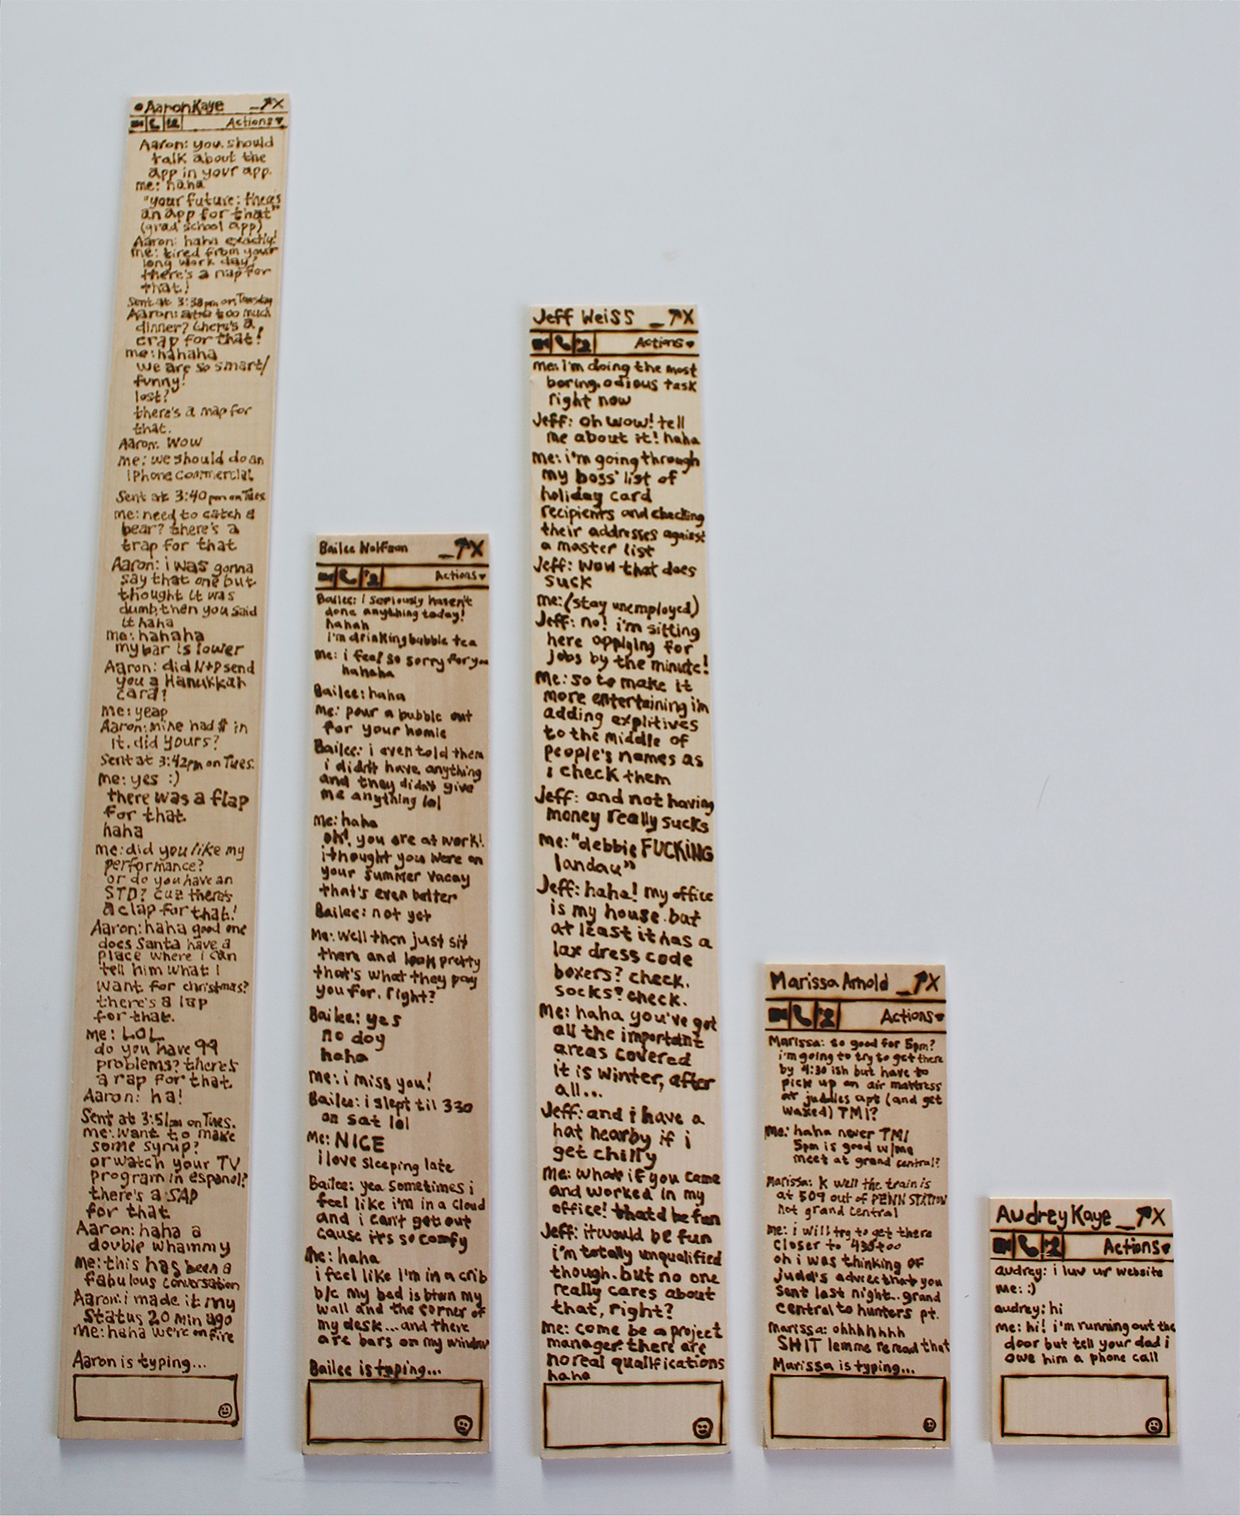 AaronKaye _↗X
Actions▾
Aaron: you should
talk about the
app in your app.
me: haha
"your future: theres
an app for that"
(grad school app)
Aaron: haha exactly!
me: tired from your
long work day?
there's a nap for
that!
Sent at 3:38pm on Tuesday
Aaron: too much
dinner? there's a
crap for that!
me: hahaha
we are so smart/
funny!
lost?
there's a map for
that.
Aaron: WOW
me: we should do an
iPhone commercial
Sent at 3:40pm on Tues
me: need to catch a
bear? there's a
trap for that
Aaron: i was gonna
say that one but
thought it was
dumb, then you said
it haha
me: hahaha
my bar is lower
Aaron: did N+P send
you a Hanukkah
card?
me: yeap
Aaron: mine had $ in
it. did yours?
Sent at 3:42pm on Tues.
me: yes :)
there was a flap
for that
haha
me: did you like my
performance?
or do you have an
STD? cuz there's
a clap for that!
Aaron: haha good one
does Santa have a
place where i can
tell him what I
want for christmas?
there's a lap
for that.
Me: LOL
do you have 99
problems? there's
a rap for that
Aaron: ha!
Sent at 3:51pm on Tues.
me: want to make
some syrup?
or watch your TV
program in espanol?
there's a SAP
for that
Aaron: haha a
double whammy
me: this has been a
fabulous conversation
Aaron: i made it my
status 20 min ago
me: haha we're on fire
Aaron is typing...
Bailee Wolfson _↗X
Actions▾
Bailee: i seriously haven't
done anything today!
hahah
i'm drinking bubble tea
me: i feel so sorry for you
hahaha
Bailee: haha
me: pour a bubble out
for your homie
Bailee: i even told them
i didn't have anything
and they didn't give
me anything lol
me: haha
oh! you are at work!
i thought you were on
your summer vacay
that's even better
Bailee: not yet
Me: Well then just sit
there and look pretty
that's what they pay
you for. right?
Bailee: yes
no doy
haha
me: i miss you!
Bailee: i slept til 330
on sat lol
Me: NICE
i love sleeping late
Bailee: yea sometimes i
feel like i'm in a cloud
and i can't get out
cause it's so comfy
me: haha
i feel like I'm in a crib
b/c my bed is btwn my
wall and the corner of
my desk...and there
are bars on my window
Bailee is typing...
Jeff Weiss _↗X
Actions▾
me: I'm doing the most
boring, odious task
right now
Jeff: Oh Wow! tell
me about it! haha
me: i'm going through
my boss' list of
holiday card
recipients and checking
their addresses against
a master list
Jeff: Wow that does
suck
me: (stay unemployed)
Jeff: no! i'm sitting
here applying for
jobs by the minute!
Me: so to make it
more entertaining i'm
adding explitives
to the middle of
people's names as
i check them
Jeff: and not having
money really sucks
me: "debbie FUCKING
landau"
Jeff: haha! my office
is my house. but
at least it has a
lax dress code
boxers? check.
socks? check.
Me: haha you've got
all the important
areas covered
it is winter, after
all...
Jeff: and i have a
hat nearby if i
get chilly
Me: what if you came
and worked in my
office! that'd be fun
Jeff: it would be fun
i'm totally unqualified
though. but no one
really cares about
that, right?
me: come be a project
manager. there are
no real qualifications
haha
Marissa Arnold _↗X
Actions▾
Marissa: so good for 5pm?
i'm going to try to get there
by 4:30 ish but have to
pick up an air mattress
at juddies apt (and get
waxed) TMI?
me: haha never TMI
5pm is good w/me
meet at grand central?
Marissa: k well the train is
at 509 out of PENN STATION
not grand central
me: i will try to get there
closer to 430 too
oh i was thinking of
judd's advice that you
sent last night...grand
central to hunters pt.
Marissa: ohhhhhhh
SHIT lemme reread that
Marissa is typing...
Audrey Kaye _↗X
Actions▾
audrey: i luv ur website
me: :)
audrey: hi
me: hi! i'm running out the
door but tell your dad i
owe him a phone call